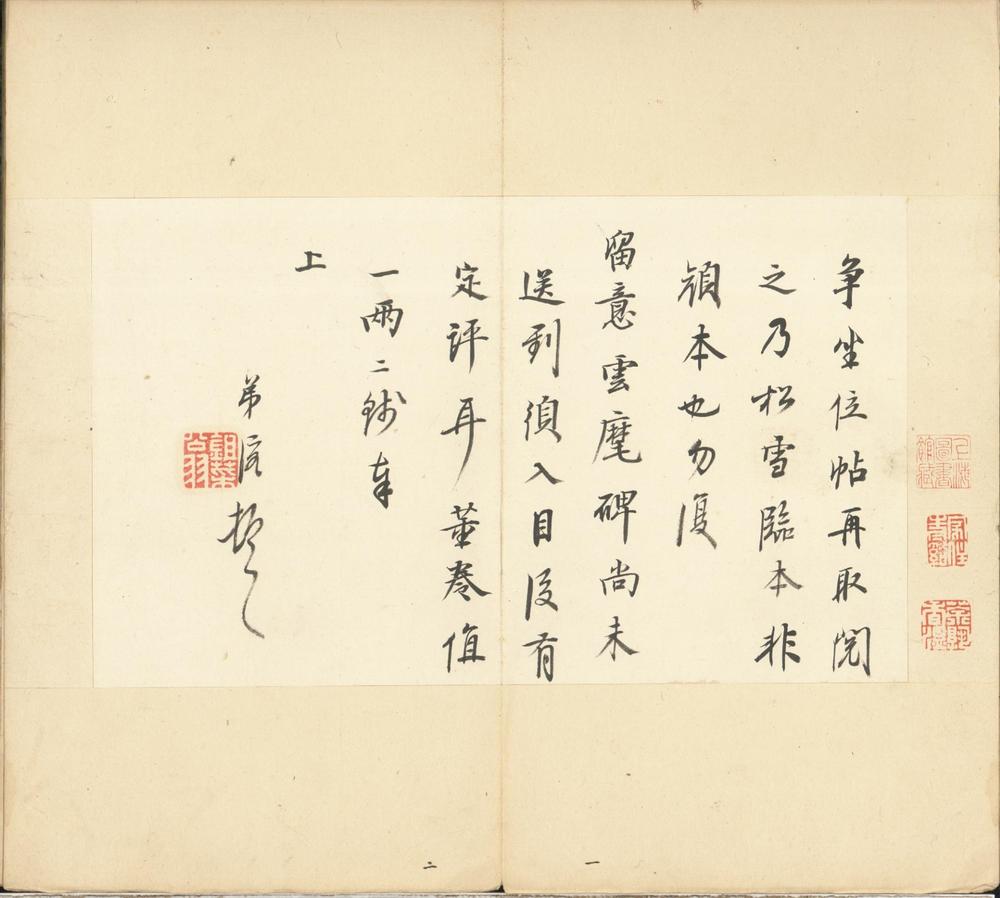 爭坐位帖再取閱
之乃松雪臨本非
顏本也勿復
留意雲麾碑尚未
送到須入目後有
定評耳董卷值
一兩二錢奉
上
弟容頓首
一
二